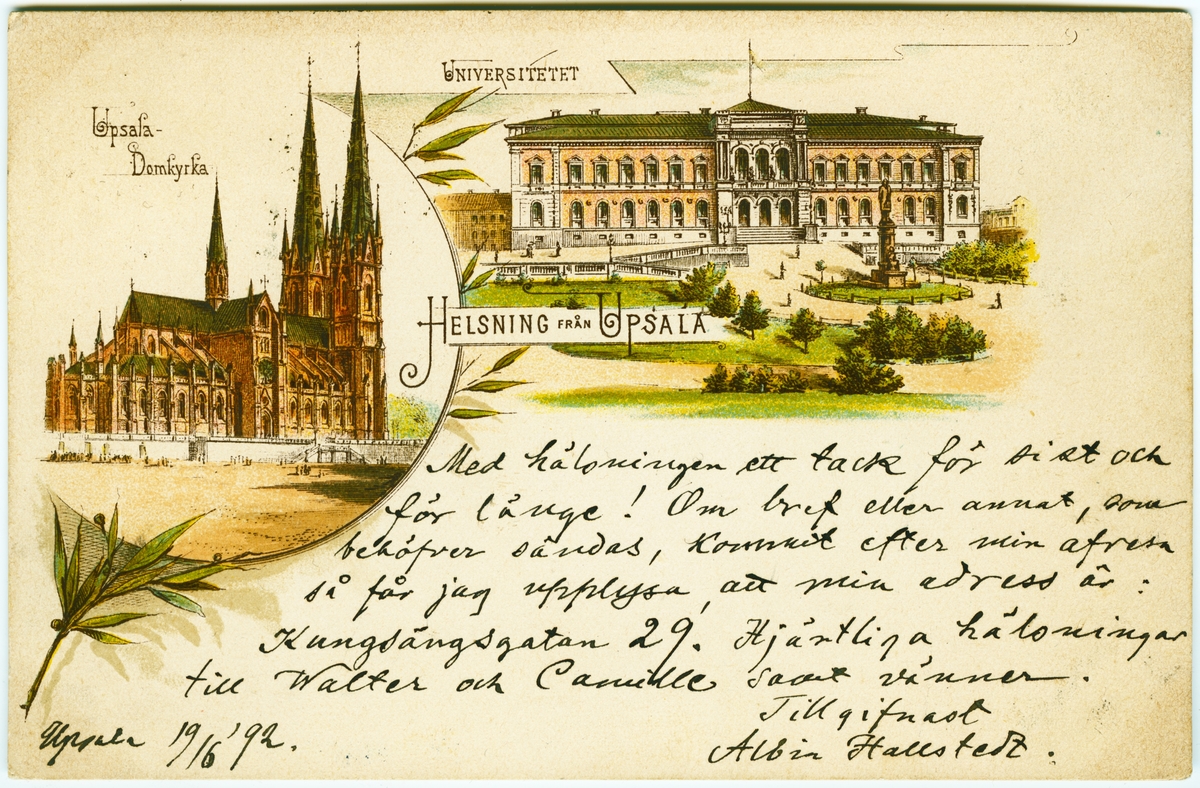 Upsala-
Domkyrka
UNIVERSITETET
HELSNING FRÅN UPSALA
Med hälsningen ett tack för sist och
för länge! Om bref eller annat, som
behöfver sändas, kommit efter min afresa
så får jag upplysa, att min adress är:
Kungsängsgatan 29. Hjärtliga hälsningar
till Walter och Camille samt vänner.
Tillgifnast
Albin Hallstedt.
Upsala 19/6 '92.